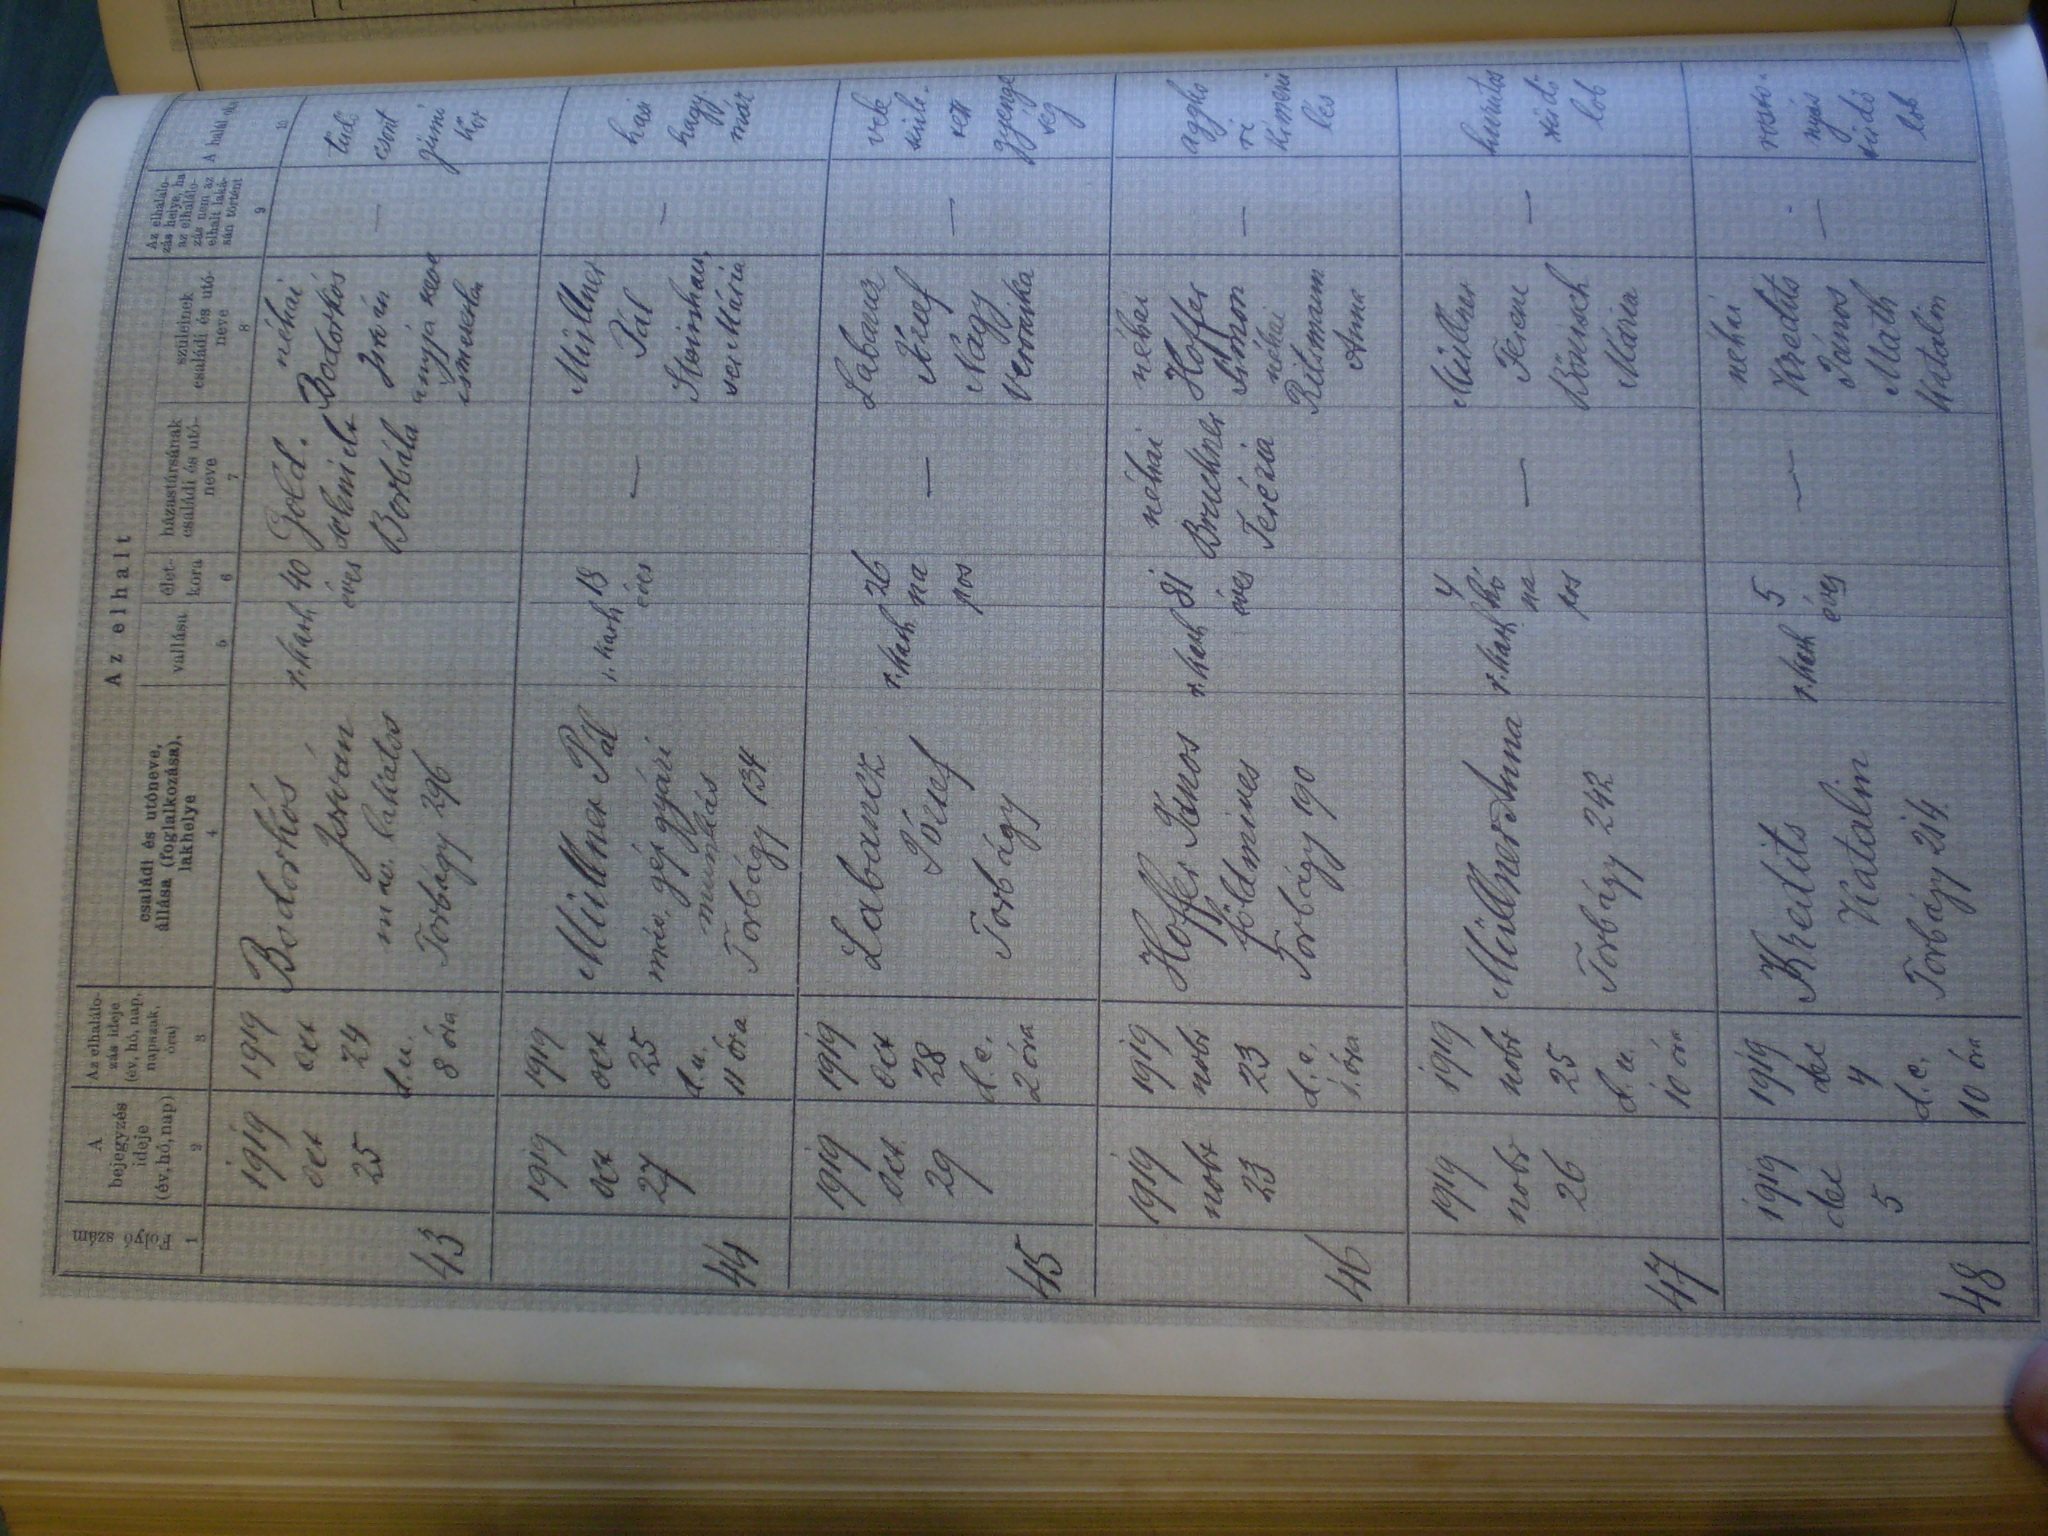 Az elhalt
Folyó szám
A bejegyzés ideje (év, hó, nap)
Az elhalálozás ideje (év, hó, nap, napszak, óra)
családi és utóneve, állása (foglalkozása), lakhelye
vallása
életkora
házastársának családi és utóneve
szüleinek családi és utóneve
Az elhalálozás helye, ha az elhalálozás nem az elhalt lakásán történt
A halál oka
1 2 3 4 5 6 7 8 9 10
43
1919
oct
25
1919
oct
24
d.u.
8 óra
Bodorkós
István
lakatos
Torbágy 296
r. kath
40
éves
Gold.
schmidt
Borbála
néhai
Bodorkós
István
anyja neve
ismeretlen
—
tüdő
csont
gümő
kór
44
1919
oct
27
1919
oct
25
d.u.
11 óra
Müllner Pál
gép gyári
munkás
Torbágy 134
r. kath
18
éves
—
Müllner
Pál
Mária
—
hasi
hagy.
máz
45
1919
oct
29
1919
oct
28
d.e.
2 óra
Labancz
József
Torbágy
r. kath
26
na
pos
—
Labancz
József
Nagy
Veronika
—
vele
szüle.
tett
gyenge
ség
46
1919
nobr
23
1919
nobr
23
d.e.
1. óra
Hoffer János
földmives
Torbágy 190
r. kath
81
éves
néhai
Bruckner
Terézia
néhai
Hoffer
Simon
néhai
Ritsmann
Anna
—
aggko
ri
kimerü
lés
47
1919
nobr
26
1919
nobr
25
d.u.
10 óra
Müllner Anna
Torbágy 242
r. kath
4
hó
na
pos
—
Müllner
Ferenc
Bönisch
Mária
—
hurutos
tüdő-
lob
48
1919
dec
5
1919
dec
4
d.e.
10 óra
Kredits
Katalin
Torbágy 214.
r. kath
5
éves
—
néhai
Kredits
János
Math
Katalin
—
rosto-
nyás
tüdő
lob